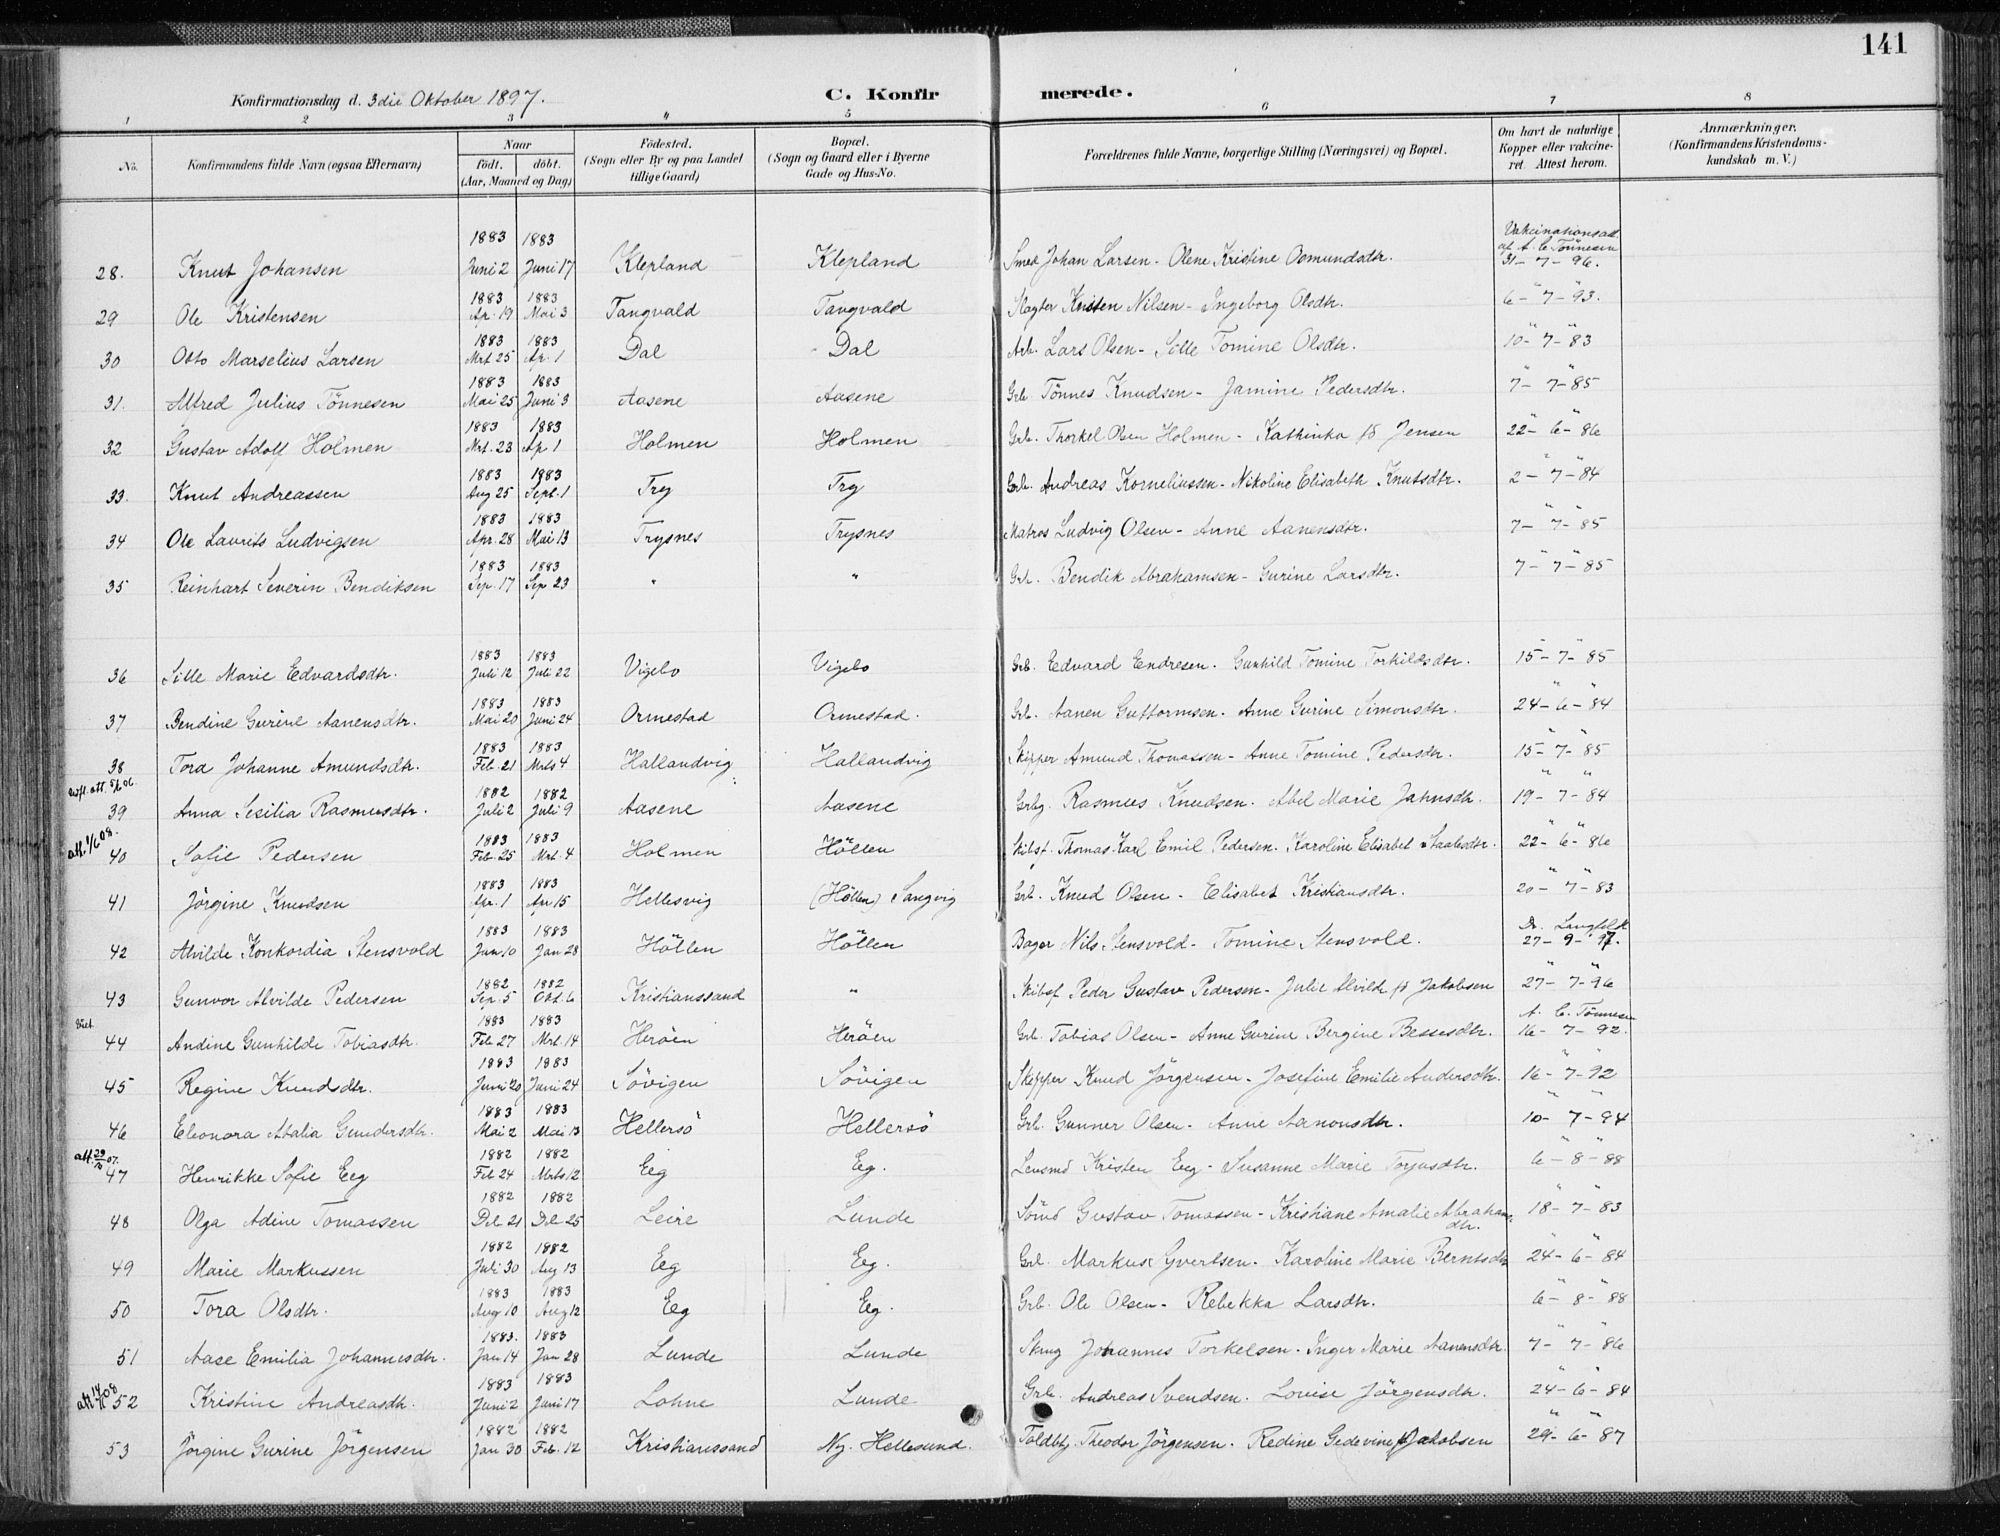 141
Konfirmationsdag d. 3die Oktober 1897.
C. Konfirmerede.
1 2 3 4 5 6 7 8
No. Konfirmandens fulde Navn (ogsaa Efternavn) Naar födt. döbt. (Aar, Maaned og Dag) Födested. (Sogn eller By og paa Landet tillige Gaard) Bopæl. (Sogn og Gaard eller i Byerne Gade og Hus-No. Forældrenes fulde Navne, borgerlige Stilling (Næringsvei) og Bopæl. Om havt de naturlige Kopper eller vakcineret. Attest herom. Anmærkninger. (Konfirmandens Kristendomskundskab m. V.)
28. Knut Johansen 1883 Juni 2 1883 Juni 17 Klepland Klepland Smed Johan Larsen - Olene Kristine Osmundsdtr. Vakcinationsatt af A. C. Tönnesen 31-7-96.
29 Ole Kristensen 1883 Ap. 19 1883 Mai 3 Tangvald Tangvald Slagter Kristen Nilsen - Ingeborg Olsdtr. 6-7-93.
30 Otto Marselius Larsen 1883 Mrt. 25 1883 Ap. 1 Dal Dal Arb. Lars Olsen - Sille Tomine Olsdtr. 10-7-83
31. Alfred Julius Tönnesen 1883 Mai 25 1883 Juni 3 Aasene Aasene Grb. Tönnes Knudsen - Jamine Pedersdtr. 7-7-85
32 Gustav Adolf Holmen 1883 Mrt. 23 1883 Ap 1 Holmen Holmen Grb. Thorkel Olsen Holmen - Kathinka fö Jensen 22-6-86
33. Knut Andreassen 1883 Aug 25 1883 Sept. 1 Try Try Grb. Andreas Korneliussen - Nikoline Elisabeth Knutsdtr. 2-7-84
34 Ole Laurits Ludvigsen 1883 Apr. 28 1883 Mai 13 Trysnes Trysnes Matros Ludvig Olsen - Anne Aanensdtr. 7-7-85
35 Reinhart Severin Bendiksen 1883 Sep. 17 1883 Sep 23 " " Grb. Bendik Abrahamsen - Gurine Larsdtr. 7-7-85
36 Sille Marie Edvardsdtr. 1883 Juli 12 1883 Juli 22 Vigebo Vigebo Grb. Eedvard Endresen. Gunhild Tomine Torkildsdtr. 15-7-85
37 Bendine Gurine Aanensdtr. 1883 Mai 20 1883 Juni 24 Ormestad Ormestad. Grb. Aanen Guttormsen. Anne Gurine Simonsdtr. 24-6-84
38 Tora Johanne Amundsdtr. 1883 Feb. 21 1883 Mrts 4 Hallandvig Hallandvig Skipper Amund Thomassen - Anne Tomine Pedersdtr. 15-7-85
39 Anna Sesilia Rasmusdtr. 1882 Juli 2 1882 Juli 9 Aasene Aasene Grbg. Rasmus Knudsen. Abel Marie Jahnsdtr. 19-7-84
att. 1/6 08.
40 Sofie Pedersen 1883 Feb. 25 1883 Mrt. 4 Holmen Höllen Skibsf. Thomas Karl Emil Pedersen. Karoline Elisabet Saalesdtr. 22-6-86
41 Jörgine Knudsen 1883 Ap. 1 1883 Apr 15 Hellesvig (Höllen) Langvig Grb. Knud Olsen - Elisabet Kristiansdtr. 20-7-83
42 Alvilde Konkordia Stensvold 1883 Jan. 10 1883 Jan 28 Höllen Höllen Bager Nils Stensvold - Tomine Stensvold. Dr. 27-9-97.
43 Gunvor Alvilde Pedersen 1882 Sep. 5 1882 Okt. 6 Kristianssand " Skibsf Peder Gustav Pedersen - Julie Alvilde fö Jakobsen 27-7-96
44 Andine Gunhilde Tobiasdtr. 1883 Feb 27 1883 Mrt. 14 Heröen Heröen Grb. Tobias Olsen - Anne Gurine Bergine Bessesdtr. A. C. Tönnesen 16-7-92.
45 Regine Knudsdtr. 1883 Juni 20 1883 Juni 24 Sövigen Sövigen Skipper Knud Jörgensen - Josefine Emilie Andersdtr. 16-7-92
46 Eleonora Atalia Gundersdtr. 1883 Mai 2 1883 Mai 13 Hellersö Hellersö Grb. Gunner Olsen - Anne Aanonsdtr. 10-7-94
att. 29/10 07.
47 Henrikke Sofie Eeg 1882 Feb 24 1882 Mrts 12 Eeg Eeg. Lensmd Kristen Eeg - Susanne Marie Torjusdtr. 6-8-88
48 Olga Adine Tomassen 1882 Del 21 1882 Del 25 Leire Lunde Sömd Gustav Tomassen - Kristiane Amalie Abrahamsdtr. 18-7-83
49 Marie Markussen 1882 Juli 30 1882 Aug 13 Eeg Eeg. Grb. Markus Gvertsen. Karoline Marie Berntsdtr 24-6-84
50 Tora Olsdtr. 1883 Aug 10 1883 Aug 12 Eeg Eeg. Grb. Ole Olsen - Rebekka Larsdtr. 6-8-88
51 Aase Emilia Johannesdtr. 1883. Jan 14 1883 Jan 28 Lunde Lunde Johannes Torkelsen. Inger Marie Aanensdtr. 7-7-86
att 14/11 08
52 Kristine Andreasdtr. 1883 Juni 2 1883 Juni 17 Lohne Lunde Grb. Andreas Svendsen. Lovise Jörgensdtr. 24-6-84
53 Jörgine Gurine Jörgensen 1882 Jan 30 1882 Feb. 12 Kristianssand Ny. Hellesund. Toldbtj. Theodor Jörgensen. Redine Gedevine fö Jakobsen 29-6-87